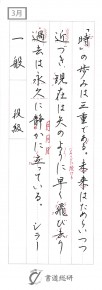 3月
「時」の歩みは三重である。未来はためらいつつ
近づき、現在は矢のように早く飛び去り
過去は永久に静かに立っている。 シラー
一般 段級
書道総研